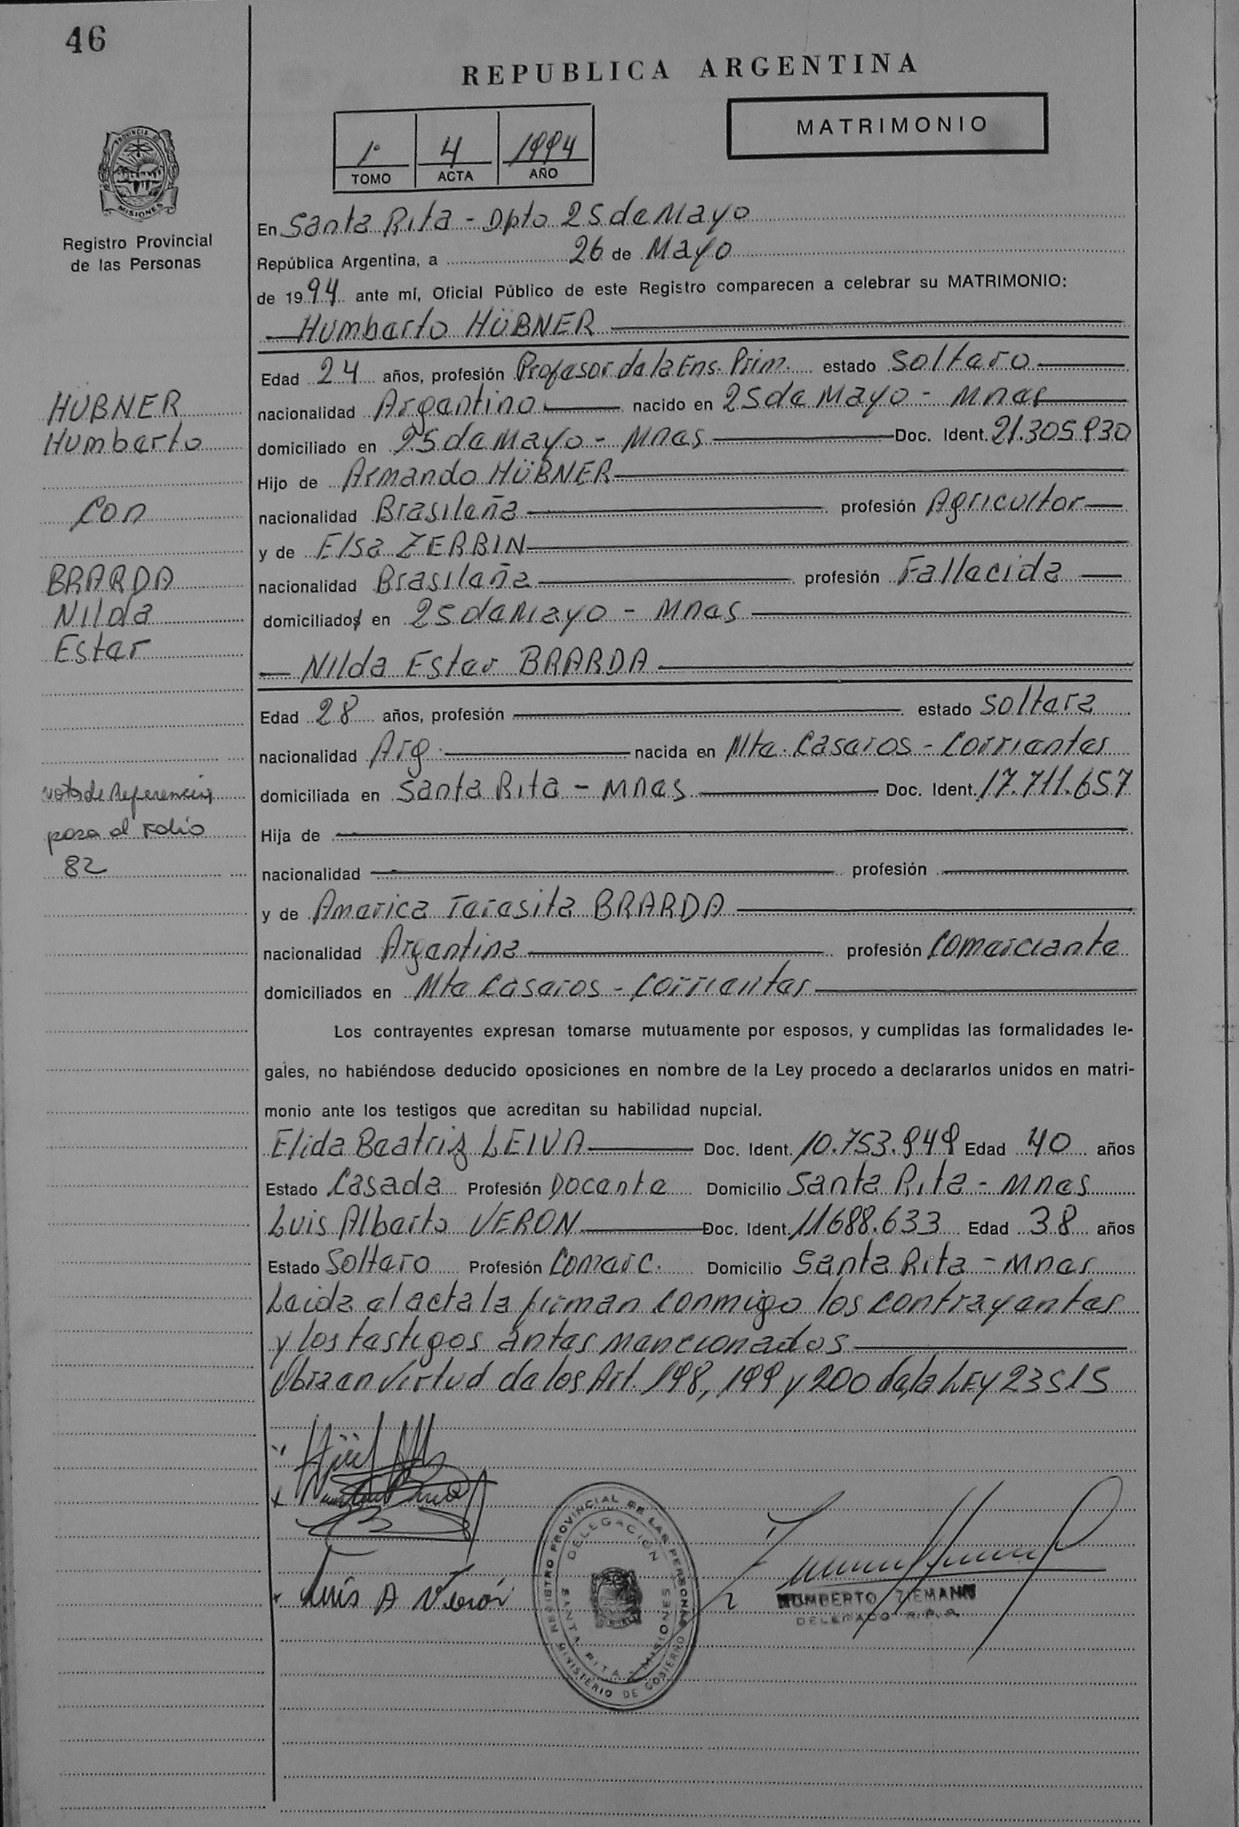 46
REPUBLICA ARGENTINA
MATRIMONIO
1º 4 1994
TOMO ACTA AÑO
PROVINCIA DE
MISIONES
Registro Provincial
de las Personas
En Santa Rita - Dpto 25 de Mayo
República Argentina, a 26 de Mayo
de 1994 ante mí, Oficial Público de este Registro comparecen a celebrar su MATRIMONIO:
Humberto HÜBNER
Edad 24 años, profesión Profesor de la Ens. Prim. estado Soltero
HÜBNER
Humberto
con
BRARDA
Nilda
Ester
nacionalidad Argentino nacido en 25 de Mayo - Mnes
domiciliado en 25 de Mayo - Mnes Doc. Ident. 21.305.930
Hijo de Armando HÜBNER
nacionalidad Brasileña profesión Agricultor
y de Elsa ZERBIN
nacionalidad Brasileña profesión Fallecida
domiciliados en 25 de Mayo - Mnes
Nilda Ester BRARDA
Edad 28 años, profesión estado Soltera
nacionalidad Arg. nacida en Mte. Caseros - Corrientes
domiciliada en Santa Rita - Mnes Doc. Ident. 17.711.657
nota de Referencia
pasa al Folio
82
Hija de
nacionalidad profesión
y de America Teresita BRARDA
nacionalidad Argentina profesión Comerciante
domiciliados en Mte Caseros - Corrientes
Los contrayentes expresan tomarse mutuamente por esposos, y cumplidas las formalidades le-
gales, no habiéndose deducido oposiciones en nombre de la Ley procedo a declararlos unidos en matri-
monio ante los testigos que acreditan su habilidad nupcial.
Elida Beatriz LEIVA Doc. Ident. 10.753.949 Edad 40 años
Estado Casada Profesión Docente Domicilio Santa Rita - Mnes
Luis Alberto VERON Doc. Ident. 11688.633 Edad 38 años
Estado Soltero Profesión Comerc. Domicilio Santa Rita - Mnes
Leida el acta la firman conmigo los contrayentes
y los testigos antes mencionados
Obra en virtud de los Art. 198, 199 y 200 de la LEY 23515
Luis A Verón
REGISTRO PROVINCIAL DE LAS PERSONAS
DELEGACION
SANTA RITA - MISIONES
MINISTERIO DE GOBIERNO
HUMBERTO ZIEMANN
DELEGADO R.P.P.